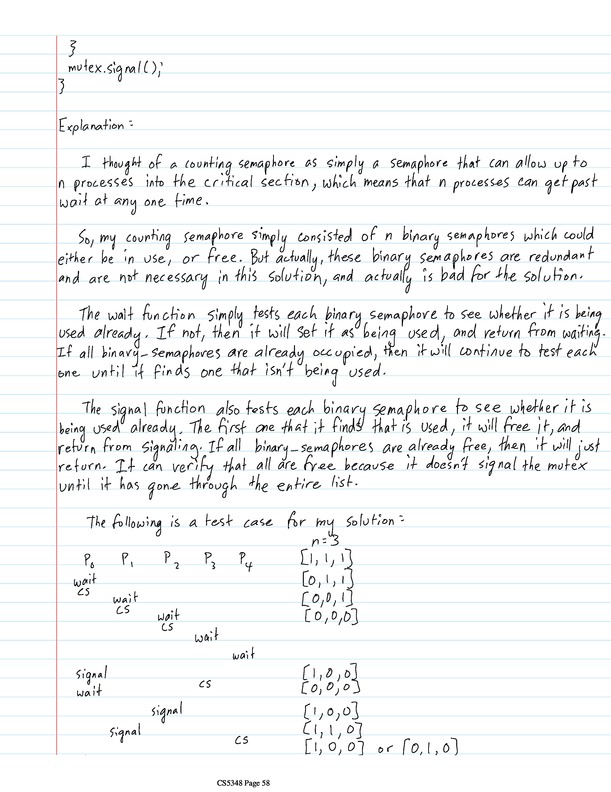 }
mutex.signal();
}
Explanation:
I thought of a counting semaphore as simply a semaphore that can allow up to
n processes into the critical section, which means that n processes can get past
wait at any one time.
So, my counting semaphore simply consisted of n binary semaphores which could
either be in use, or free. But actually, these binary semaphores are redundant
and are not necessary in this solution, and actually is bad for the solution.
The wait function simply tests each binary semaphore to see whether it is being
used already. If not, then it will set it as being used, and return from waiting.
If all binary-semaphores are already occupied, then it will continue to test each
one until it finds one that isn't being used.
The signal function also tests each binary semaphore to see whether it is
being used already. The first one that it finds that is used, it will free it, and
return from signaling. If all binary-semaphores are already free, then it will just
return. It can verify that all are free because it doesn't signal the mutex
until it has gone through the entire list.
The following is a test case for my solution:
n=3
P0 P1 P2 P3 P4 [1,1,1]
wait [0,1,1]
CS
wait [0,0,1]
CS
wait [0,0,0]
CS
wait
wait
signal [1,0,0]
wait CS [0,0,0]
signal [1,0,0]
signal [1,1,0]
CS [1,0,0] or [0,1,0]
CS5348 Page 58